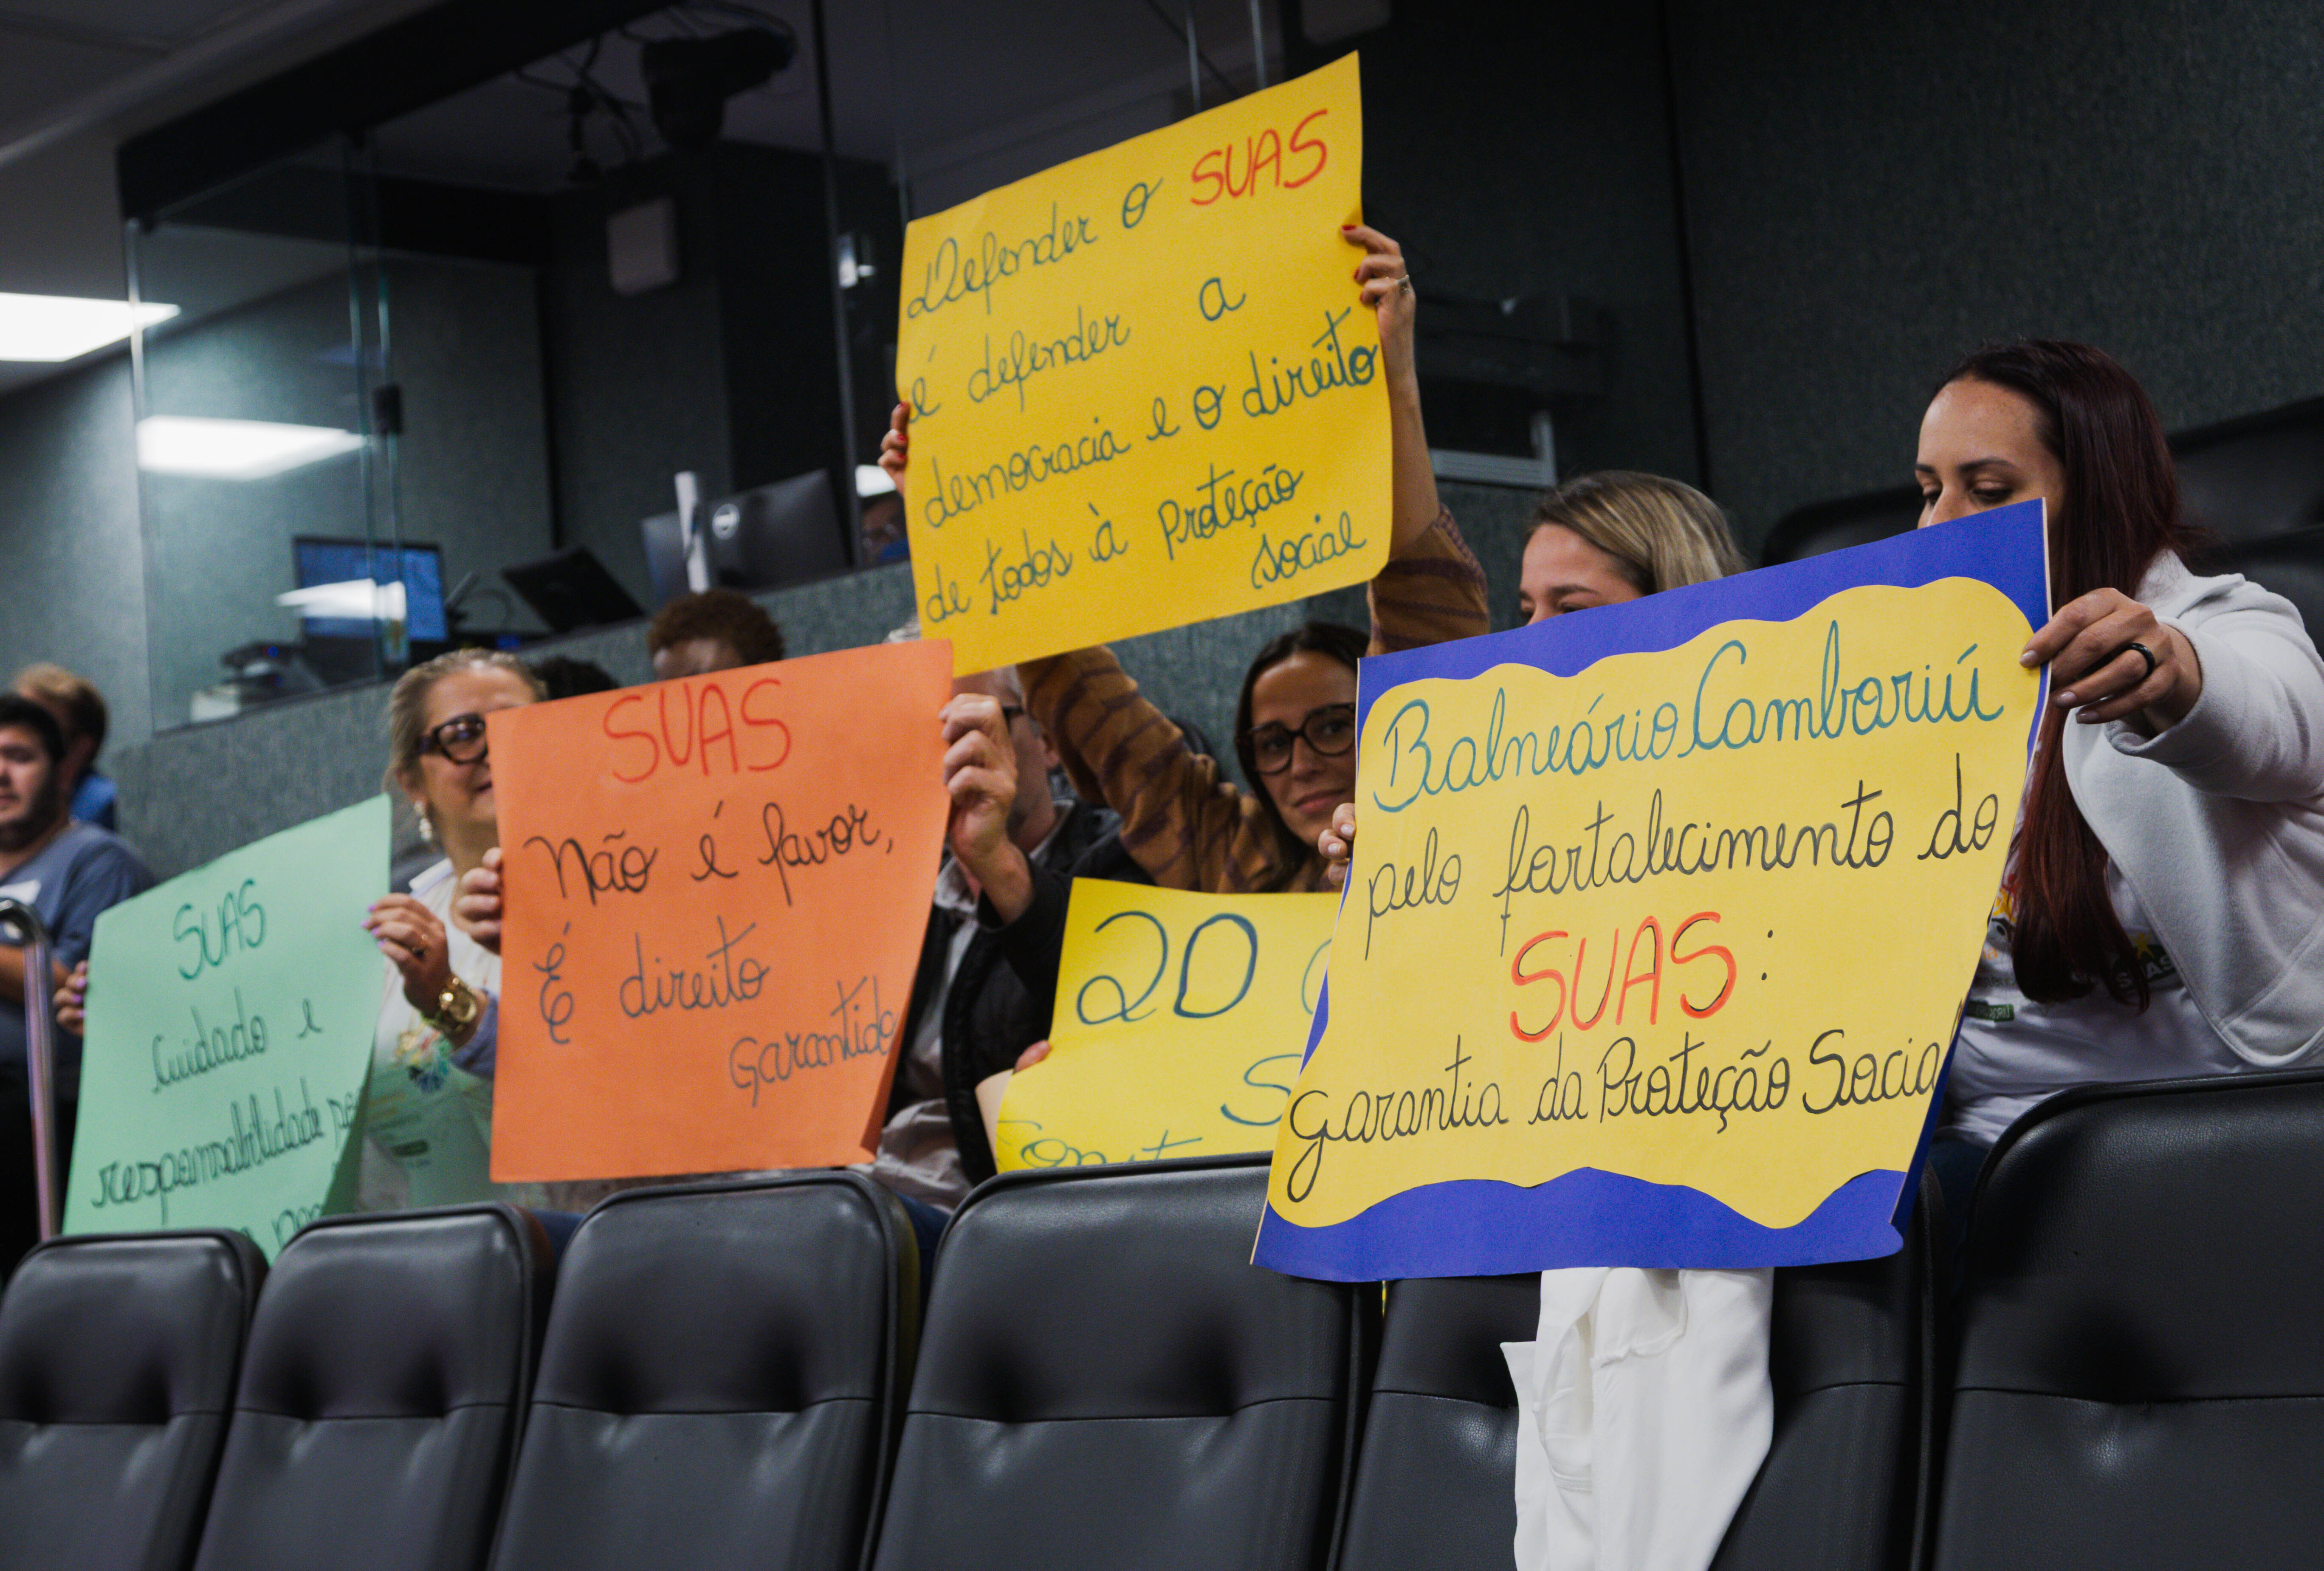 Defender o SUAS
é defender a
democracia e o direito
de todos à Proteção
social
SUAS
Não é favor,
É direito
Garantido
SUAS
Cuidado e
responsabilidade
20
Balneário Camboriú
pelo fortalecimento do
SUAS:
garantia da Proteção Social